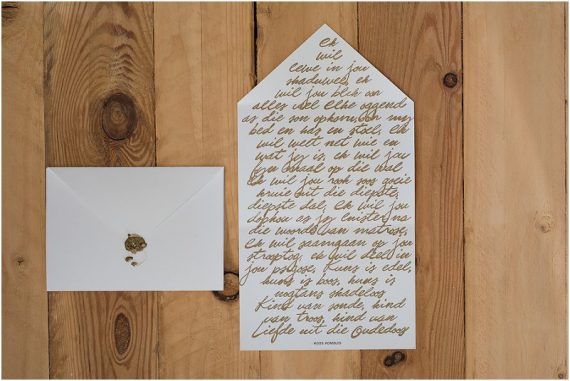 Ek
wil
lewe in jou
skaduwee, ek
wil jou blik oor
alles voel elke oggend
as die son opkom, oor my
bed en tas en stoel, Ek
wil weet net wie en
wat jy is, ek wil jou
fyn koraal op die wal
Ek wil jou rook soos goeie
kruie uit die diepste,
diepste dal, Ek wil jou
dophou as jy luister na
die woorde van matrose,
Ek wil saamgaan op jou
strooptog, ek wil deel in
jou psigose, Kuns is edel,
kuns is boos, kuns is
nogtans skadeloos
Kind van sonde, kind
van troos, kind van
Liefde uit die Oudedoos
- KOOS KOMBUIS